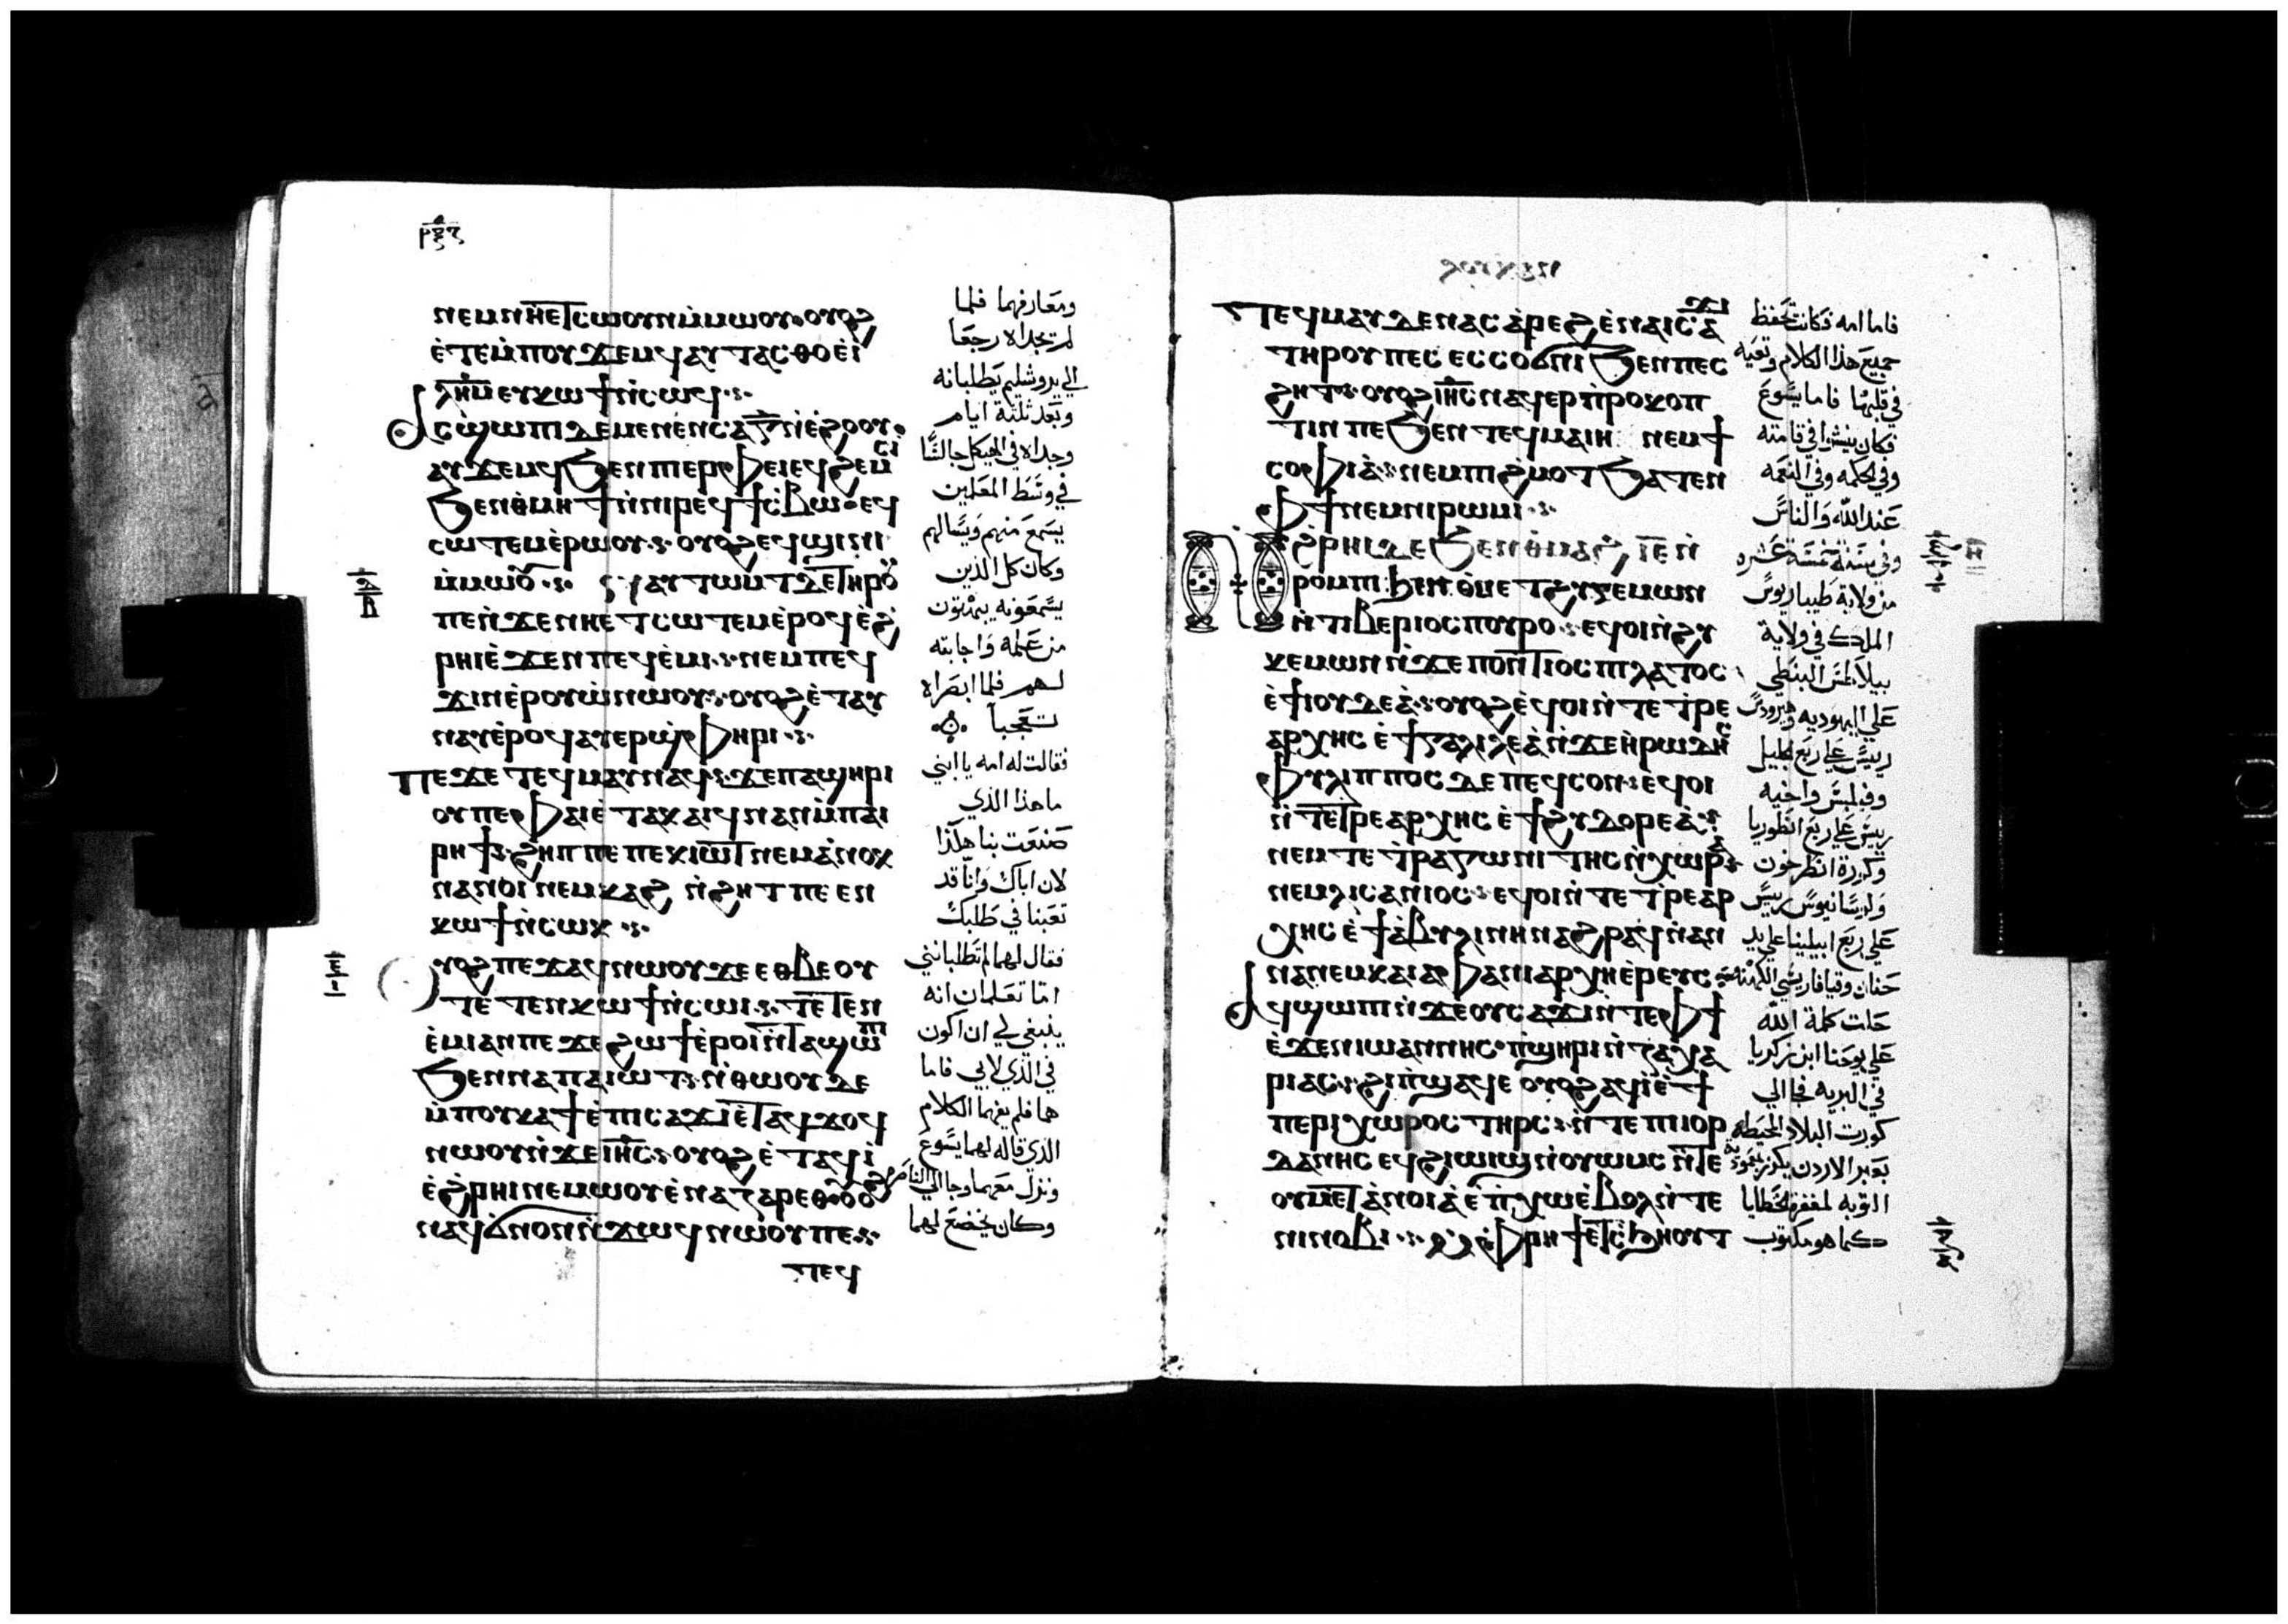 ⲛⲉⲙⲛⲏⲉⲧⲥⲱⲟⲩⲛⲙ̀ⲙⲱⲟⲩ ⲟⲩⲟϩ
ⲉ̀ⲧⲉⲙ̀ⲡⲟⲩϫⲉⲙϥ ⲁⲩⲧⲁⲥⲑⲟ ⲉ̀ⲓ̅
ⲗ̅ⲏ̅ⲙ̅ ⲉⲩⲕⲱϯ ⲛ̀ⲥⲱϥ
ⲁⲥϣⲱⲡⲓ ⲇⲉ ⲙⲉⲛⲉⲛⲥⲁ ⲅ̅ ⲛ̀ⲉ̀ϩⲟⲟⲩ
ⲁⲩϫⲉⲙϥ ϧⲉⲛ ⲡⲓⲉⲣⲫⲉⲓ ⲉϥϩⲉⲙⲥⲓ
ϧⲉⲛ ⲑⲙⲏϯ ⲛ̀ⲛⲓⲣⲉϥϯⲥ̀ⲃⲱ ⲉϥ
ⲥⲱⲧⲉⲙ ⲉ̀ⲣⲱⲟⲩ ⲟⲩⲟϩ ⲉϥϣⲓⲛⲓ
ⲙ̀ⲙⲱⲟⲩ ⲛⲁⲩⲧⲱⲙⲧ ⲇⲉ ⲧⲏⲣⲟⲩ
ⲡⲉ ⲛ̀ϫⲉ ⲛⲏⲉⲧⲥⲱⲧⲉⲙ ⲉ̀ⲣⲟϥ ⲉ̀ϩ
ⲣⲏⲓ ⲉ̀ϫⲉⲛ ⲡⲉϥⲉ̀ⲙⲓ ⲛⲉⲙ ⲡⲉϥ
ϫⲓⲛⲉ̀ⲣⲟⲩⲱ̀ ⲛⲱⲟⲩ ⲟⲩⲟϩ ⲉ̀ⲧⲁⲩ
ⲛⲁⲩ ⲉ̀ⲣⲟϥ ⲁⲩⲉⲣϣ̀ⲫⲏⲣⲓ
ⲡⲉϫⲉ ⲧⲉϥⲙⲁⲩ ⲛⲁϥ ϫⲉ ⲡⲁϣⲏⲣⲓ
ⲟⲩ ⲡⲉ ⲫⲁⲓ ⲉ̀ⲧⲁⲕⲁⲓϥ ⲛⲁⲛ ⲙ̀ⲡⲁⲓ
ⲣⲏϯ ϩⲏⲡⲡⲉ ⲡⲉⲕⲓⲱⲧ ⲛⲉⲙ ⲁ̀ⲛⲟⲕ
ⲛⲁⲛⲟⲓ ⲛⲉⲙⲕⲁϩ ⲛ̀ϩⲏⲧ ⲡⲉ ⲉⲛ
ⲕⲱϯ ⲛ̀ⲥⲱⲕ
ⲟⲩⲟϩ ⲡⲉϫⲁϥ ⲛⲱⲟⲩ ϫⲉ ⲉⲑⲃⲉ ⲟⲩ
ⲧⲉⲧⲉⲛⲕⲱϯ ⲛ̀ⲥⲱⲓ ⲧⲉⲧⲉⲛ
ⲉ̀ⲙⲓ ⲁⲛ ⲡⲉ ϫⲉ ϩⲱϯ ⲉ̀ⲣⲟⲓ ⲛ̀ⲧⲁϣⲱⲡⲓ
ϧⲉⲛ ⲛⲁ ⲡⲁⲓⲱⲧ ⲛ̀ⲑⲱⲟⲩ ⲇⲉ
ⲙ̀ⲡⲟⲩⲕⲁϯ ⲉ̀ⲡⲓⲥⲁϫⲓ ⲉ̀ⲧⲁϥϫⲟϥ
ⲛⲱⲟⲩ ⲛ̀ϫⲉ ⲓⲏ̅ⲥ̅ ⲟⲩⲟϩ ⲉ̀ⲧⲁϥⲓ̀
ⲉ̀ϩⲣⲏⲓ ⲛⲉⲙⲱⲟⲩ ⲉ̀ⲛⲁⲍⲁⲣⲉⲑ ⲟⲩⲟϩ
ⲛⲁϥϭⲛⲟⲛ ⲛ̀ϫⲱϥ ⲛⲱⲟⲩ ⲡⲉ
ⲧⲉϥ
ومعارفهما فلما
لم يجداه رجعا
الي يروشليم يطلبانه
وبعد ثلثة ايام
وجداه في الهيكل جالسًا
في وسط المعلمين
يسمع منهم ويسالهم
وكان كل الذين
يسمعونه يبهتون
من علمه واجابته
لهم فلما ابصراه
تعجبا
فقالت له امه يا ابني
ما هذا الذي
صنعت بنا هكذا
لان اباك وانا قد
تعبنا في طلبك
فقال لهما لم تطلبانني
اما تعلمان انه
ينبغي لي ان اكون
في الذي لابي فاما
هما فلم يفهما الكلام
الذي قاله لهما يسوع
ونزل معهما وجا الي الناصره
وكان يخضع لهما
ⲧⲉϥⲙⲁⲩ ⲇⲉ ⲛⲁⲥⲁ̀ⲣⲉϩ ⲉ̀ⲛⲁⲓⲥⲁϫⲓ
ⲧⲏⲣⲟⲩ ⲡⲉ ⲉⲥⲥⲟⲃϯ ϧⲉⲛ ⲡⲉⲥ
ϩⲏⲧ ⲟⲩⲟϩ ⲓⲏ̅ⲥ̅ ⲛⲁϥⲉⲣⲡ̀ⲣⲟⲕⲟⲡ
ⲧⲓⲛ ⲡⲉ ϧⲉⲛ ⲧⲉϥⲙⲁⲓⲏ ⲛⲉⲙ ϯ
ⲥⲟⲫⲓⲁ̀ ⲛⲉⲙ ⲡⲓϩ̀ⲙⲟⲧ ϧⲁⲧⲉⲛ
ⲫϯ ⲛⲉⲙ ⲛⲓⲣⲱⲙⲓ
ⲛ̀ϩⲣⲏⲓ ⲇⲉ ϧⲉⲛ ⲑⲙⲁϩ ⲓ̅ⲉ̅ ⲛ̀
ⲣⲟⲙⲡⲓ ϧⲉⲛ ⲑⲙⲉⲧϩⲩⲅⲉⲙⲱⲛ
ⲛ̀ⲧⲓⲃⲉⲣⲓⲟⲥ ⲡⲟⲩⲣⲟ ⲉϥⲟⲓ ⲛ̀ϩⲩ
ⲅⲉⲙⲱⲛ ⲛ̀ϫⲉ ⲡⲟⲛⲧⲓⲟⲥ ⲡⲓⲗⲁⲧⲟⲥ
ⲉ̀ϯⲓⲟⲩⲇⲉⲁ̀ ⲟⲩⲟϩ ⲉϥⲟⲓ ⲛ̀ⲧⲉⲧⲣⲉ
ⲁⲣⲭⲏⲥ ⲉ̀ϯⲅⲁⲗⲓⲗⲉⲁ̀ ⲛ̀ϫⲉ ⲏ̀ⲣⲱⲇⲏⲥ
ⲫⲩⲗⲓⲡⲡⲟⲥ ⲇⲉ ⲡⲉϥⲥⲟⲛ ⲉϥⲟⲓ
ⲛ̀ⲧⲉⲧⲣⲉⲁⲣⲭⲏⲥ ⲉ̀ϯϩⲩⲇⲟⲣⲉⲁ̀
ⲛⲉⲙ ⲧⲉⲧ̀ⲣⲁⲅⲱⲛⲓⲧⲏⲥ ⲛ̀ⲭⲱⲣⲁ
ⲛⲉⲙ ⲗⲓⲥⲁⲛⲓⲟⲥ ⲉϥⲟⲓ ⲛ̀ⲧⲉⲧ̀ⲣⲉⲁⲣ
ⲭⲏⲥ ⲉ̀ϯⲁ̀ⲃⲩⲗⲓⲛⲏ ⲛⲁϩⲣⲁϥ ⲛ̀ⲁⲛ
ⲛⲁ ⲛⲉⲙ ⲕⲁⲓⲁⲫⲁ ⲛⲓⲁⲣⲭⲏⲉ̀ⲣⲉⲩⲥ
ⲁϥϣⲱⲡⲓ ⲛ̀ϫⲉ ⲟⲩⲥⲁϫⲓ ⲛ̀ⲧⲉ ⲫϯ
ⲉ̀ϫⲉⲛ ⲓⲱⲁⲛⲛⲏⲥ ⲡ̀ϣⲏⲣⲓ ⲛ̀ⲍⲁⲭⲁ
ⲣⲓⲁⲥ ϩⲓ ⲡ̀ϣⲁϥⲉ ⲟⲩⲟϩ ⲁϥⲓ̀ ⲉ̀ϯ
ⲡⲉⲣⲓⲭⲱⲣⲟⲥ ⲧⲏⲣⲥ ⲛ̀ⲧⲉ ⲡⲓⲓⲟⲣ
ⲇⲁⲛⲏⲥ ⲉϥϩⲓⲱⲓϣ ⲛ̀ⲟⲩⲱⲙⲥ ⲛ̀ⲧⲉ
ⲟⲩⲙⲉⲧⲁ̀ⲛⲟⲓⲁ̀ ⲉ̀ⲡ̀ⲭⲱ ⲉ̀ⲃⲟⲗ ⲛ̀ⲧⲉ
ⲛⲓⲛⲟⲃⲓ ⲙ̀ⲫⲣⲏϯ ⲉⲧⲥ̀ϧⲏⲟⲩⲧ
فاما امه فكانت تحفظ
جميع هذا الكلام وتعيه
في قلبها فاما يسوع
فكان ينشوا في قامته
وفي الحكمه وفي النعمه
عند الله والناس
وفي سنة خمسة عشره
من ولاية طيباريوس
الملك في ولاية
بيلاطس البنطي
علي اليهوديه وهيرودس
رييس علي ربع الجليل
وفيلبس واخيه
رييس علي ربع انطوريا
وكورة انطرخون
وليسانيوس رييس
علي ربع ابيلينا علي يد
حنان وقيافا ريسي الكهنه
حلت كلمة الله
علي يوحنا ابن زكريا
في البريه فجا الي
كورت البلاد المحيطه
بعبر الاردن يكرز بمعموديه
التوبه لمغفرة الخطايا
كما هو مكتوب